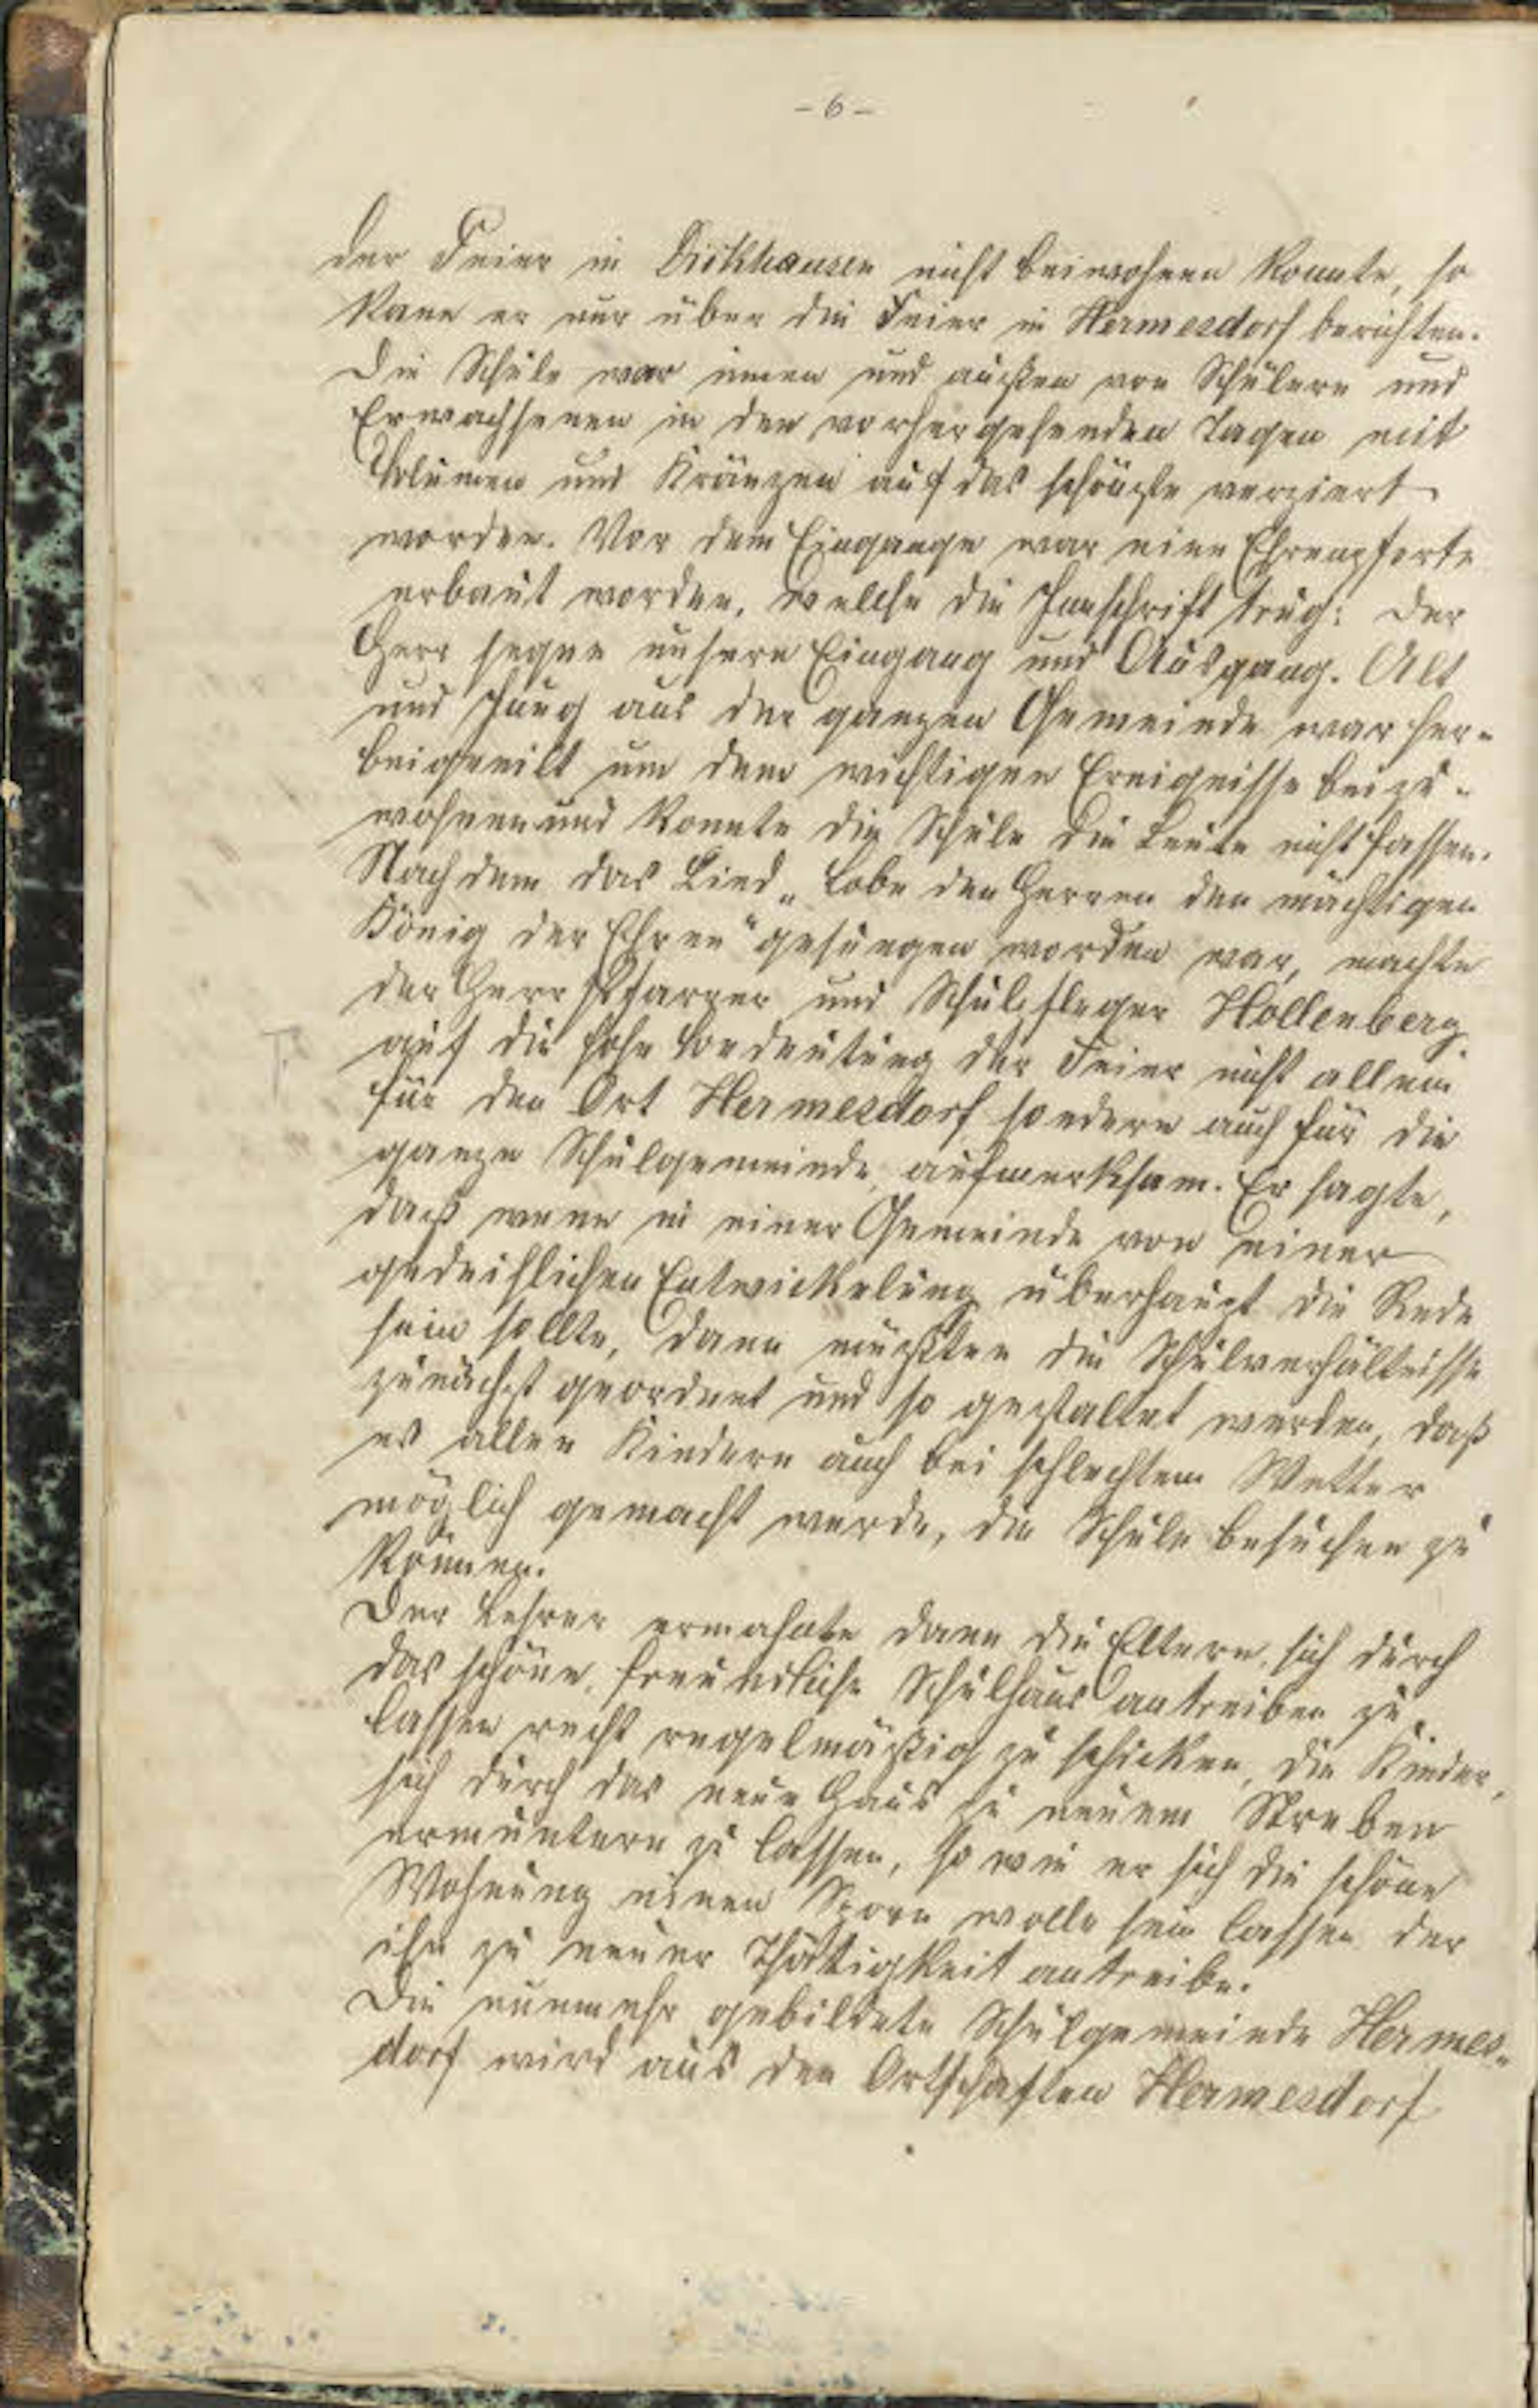 - 6 -
der Feier in Dickhausen nicht beiwohnen konnte, so
kann er nur über die Feier in Hermesdorf berichten.
Die Schule war innen und außen von Schülern und
Erwachsenen in den vorhergehenden Tagen mit
Blumen und Kränzen auf das schönste verziert
worden. Vor dem Eingange war eine Ehrenpforte
erbaut worden, welche die Innschrift trug: Der
Herr segne unsern Eingang und Ausgang. Alt
und Jung aus der ganzen Gemeinde war her-
beigeeilt um dem wichtigen Ereignisse beizu-
wohnen und konnte die Schule die Leute nicht fassen.
Nachdem das Lied „Lobe den Herren den mächtigen
König der Ehren" gesungen worden war, machte
der Herr Pfarrer und Schulpfleger Hollenberg
auf die hohe Bedeutung der Feier nicht allein
für den Ort Hermesdorf sondern auch für die
ganze Schulgemeinde aufmerksam. Er sagte,
daß wenn in einer Gemeinde von einer
gedeihlichen Entwickelung überhaupt die Rede
sein sollte, dann müßten die Schulverhältnisse
zunächst geordnet und so gestaltet werden, daß
es allen Kindern auch bei schlechtem Wetter
möglich gemacht werde, die Schule besuchen zu
können.
Der Lehrer ermahnte dann die Eltern, sich durch
das schöne, freundliche Schulhaus antreiben zu
lassen recht regelmäßig zu schicken, die Kinder,
sich durch das neue Haus zu neuem Streben
ermuntern zu lassen, so wie er sich die schöne
Wohnung einen Sporn wolle sein lassen der
ihn zu neuer Thätigkeit antreibe.
Die nunmehr gebildete Schulgemeinde Hermes-
dorf wird aus den Ortschaften Hermesdorf